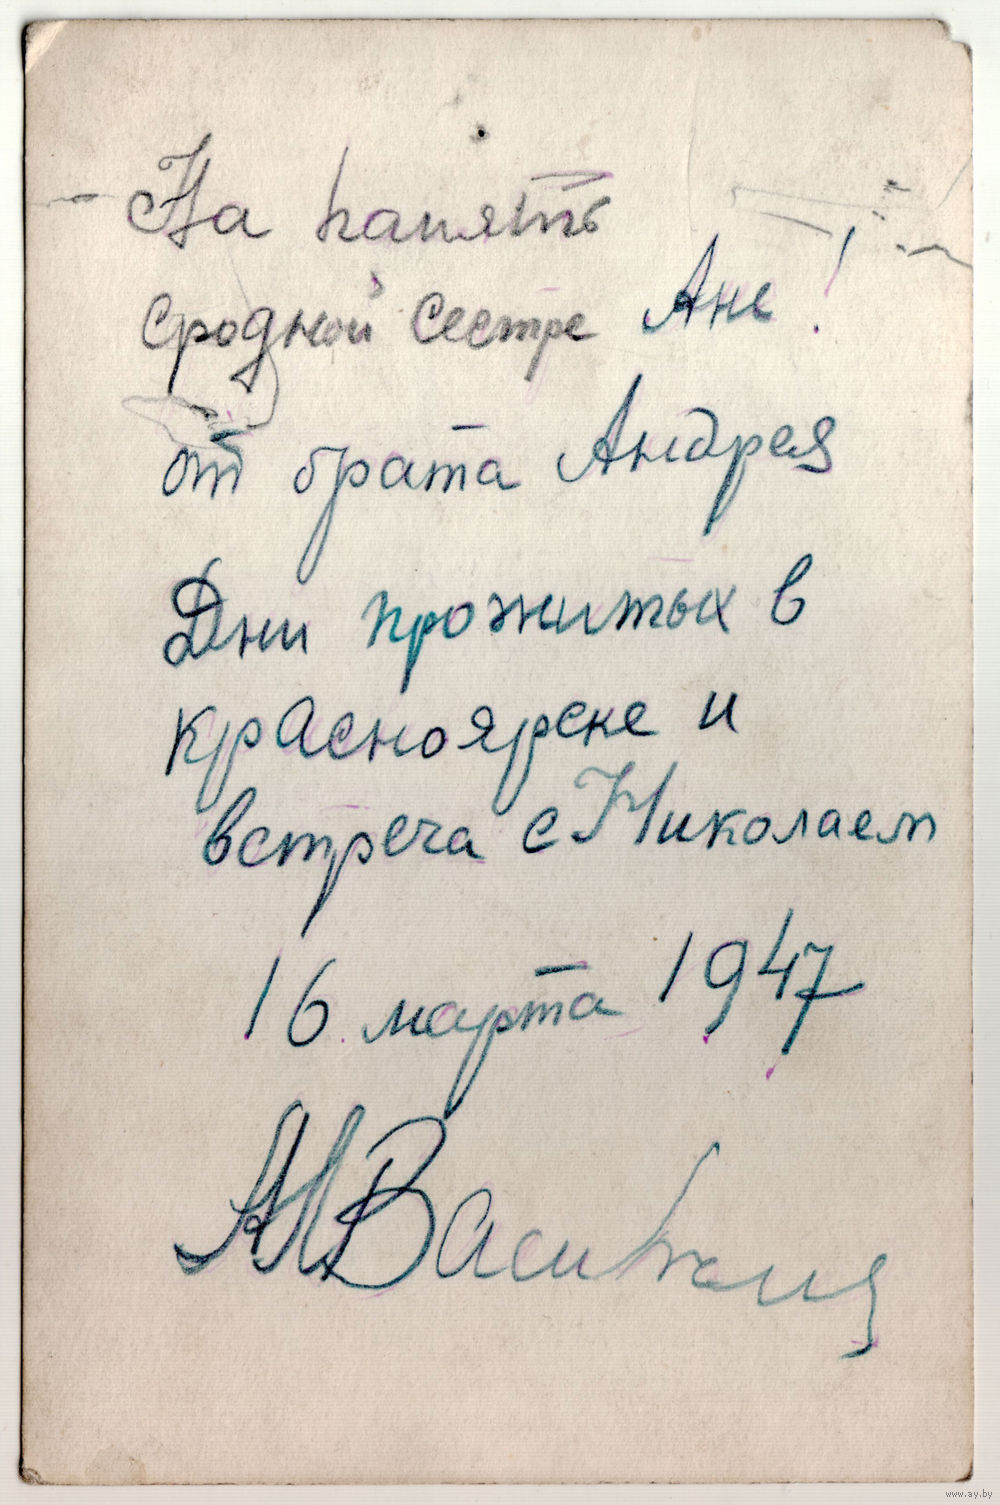 На память
сродной сестре Ане!
от брата Андрея
Дни прожитых в
красноярске и
встреча с Николаем
16 марта 1947
www.ay.by